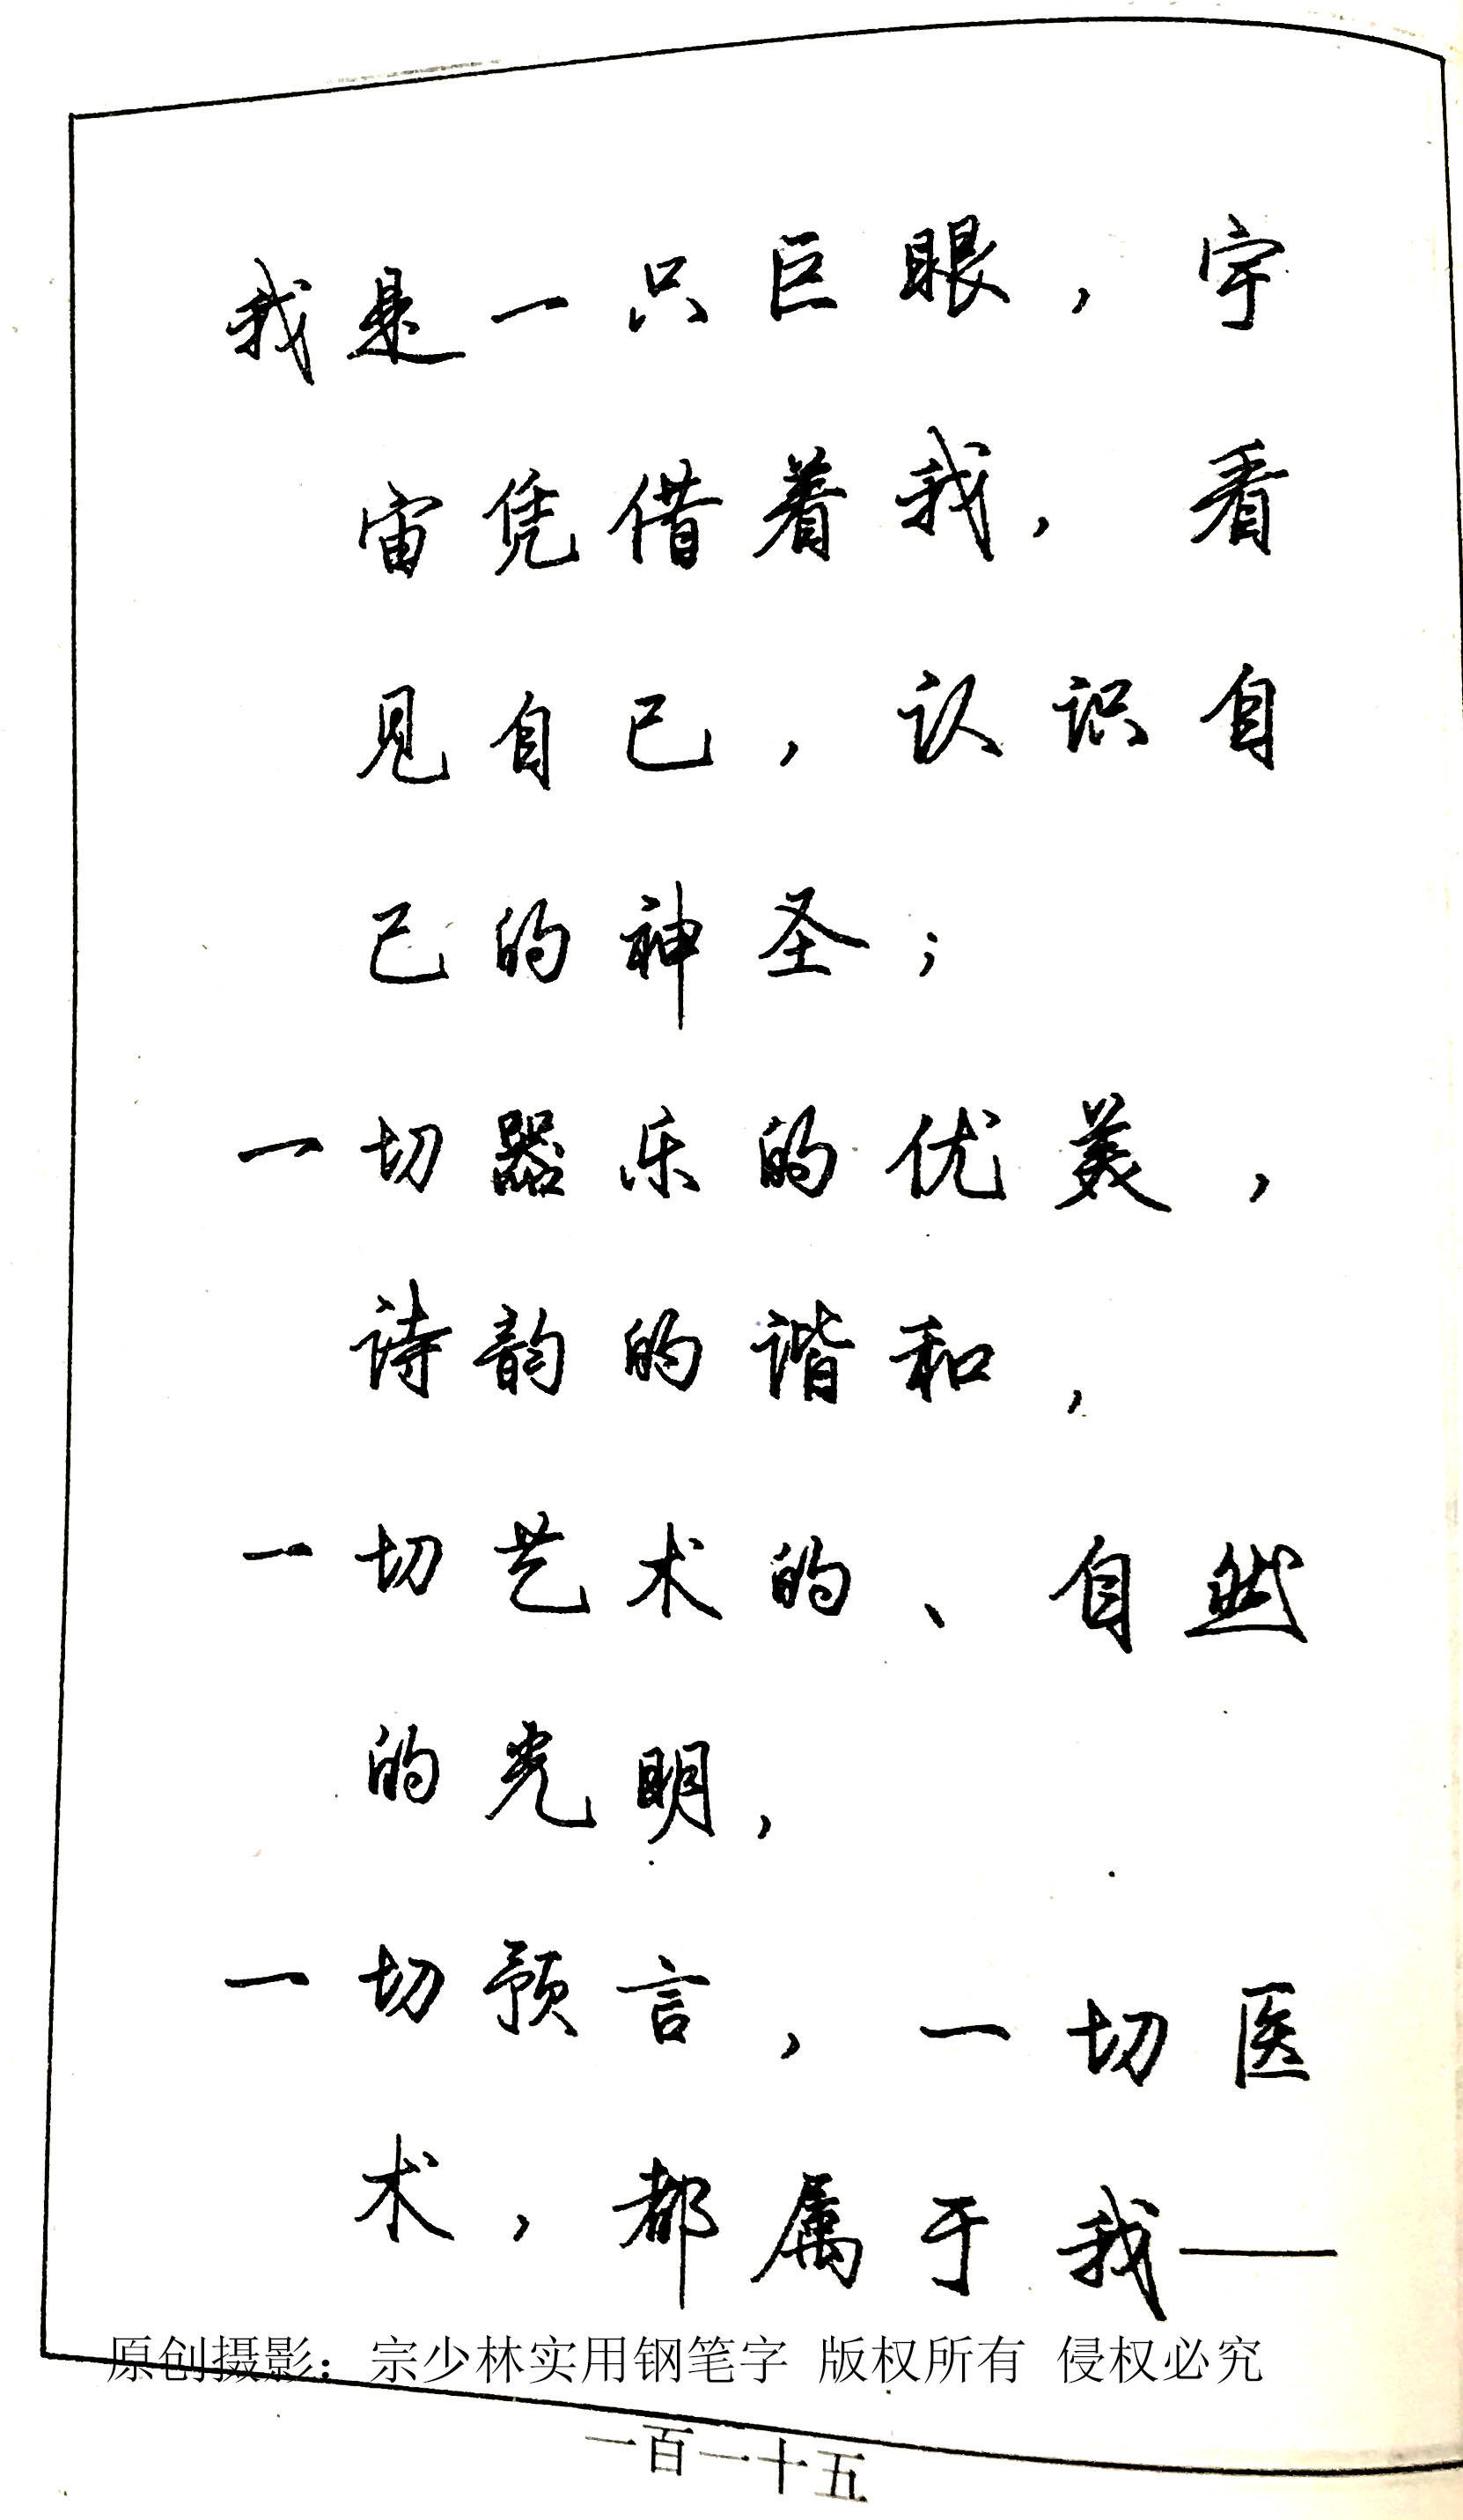 我是一只巨眼，宇
宙凭借着我，看
见自己，认识自
己的神圣；
一切器乐的优美，
诗韵的谐和，
一切艺术的、自然
的光明，
一切预言，一切医
术，都属于我——
原创摄影：宗少林实用钢笔字 版权所有 侵权必究
一百一十五